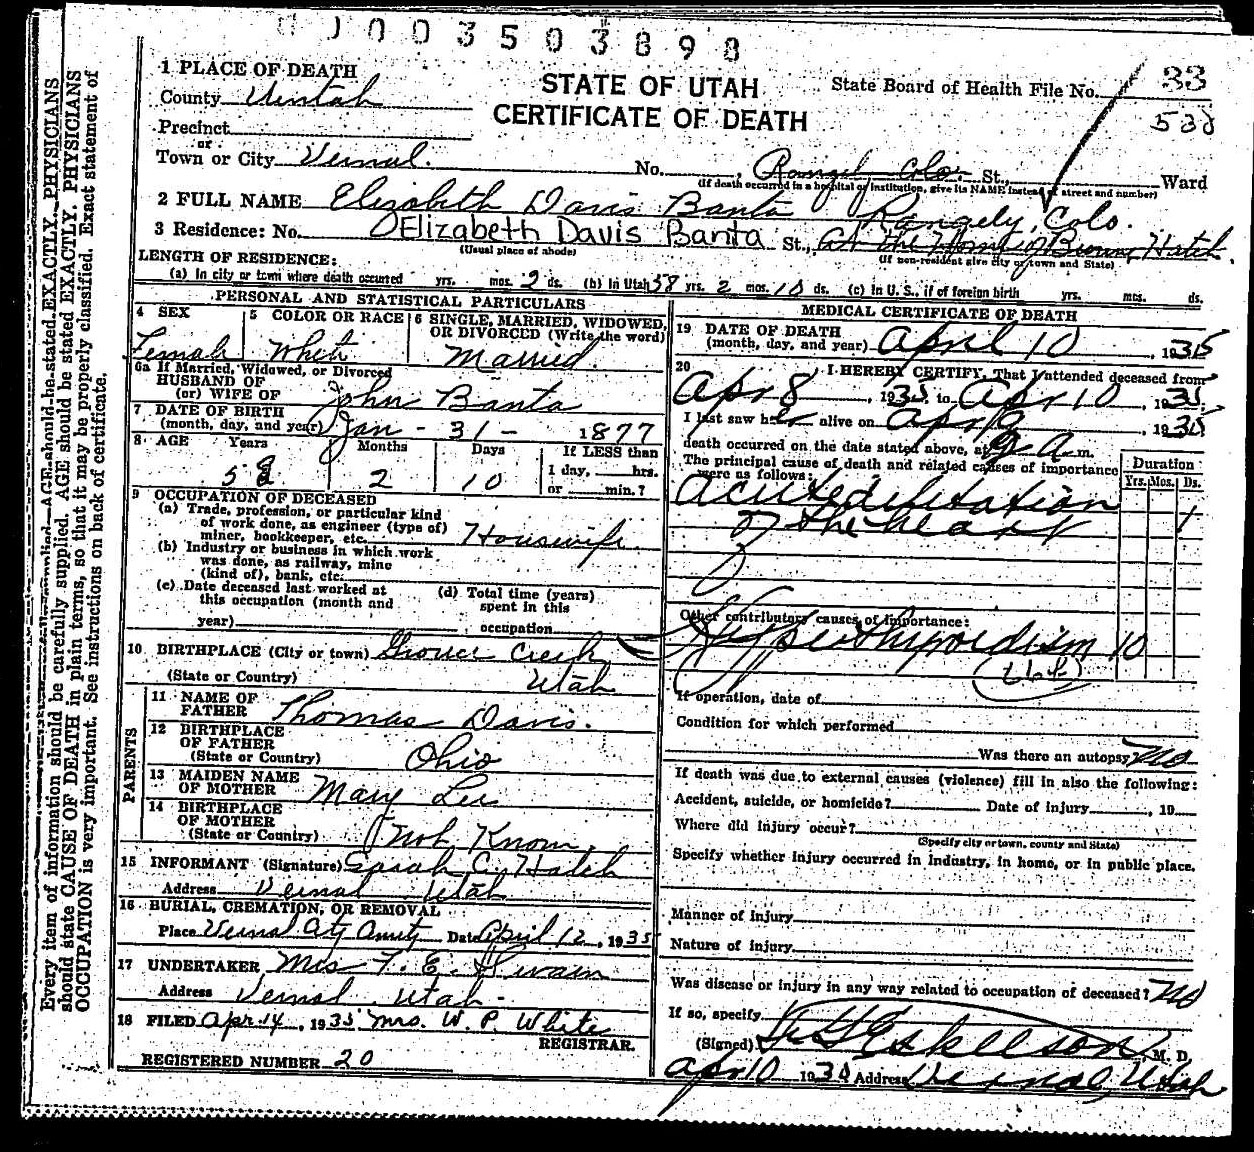 0003503898
1 PLACE OF DEATH
County Uintah
Precinct
or
Town or City Vernal.
STATE OF UTAH
CERTIFICATE OF DEATH
State Board of Health File No. 33
530
No. , Rangely Colo. St., Ward
(If death occurred in a hospital or institution, give its NAME instead of street and number)
2 FULL NAME Elizabeth Davis Banta Rangely, Colo.
3 Residence: No. Elizabeth Davis Banta St., At the Home of Hatch.
(Usual place of abode) (If non-resident give city or town and State)
LENGTH OF RESIDENCE:
(a) In city or town where death occurred yrs. mos. 2 ds. (b) In Utah 58 yrs. 2 mos. 10 ds. (c) in U. S., if of foreign birth yrs. mos. ds.
PERSONAL AND STATISTICAL PARTICULARS
4 SEX
Female
5 COLOR OR RACE
White
6 SINGLE, MARRIED, WIDOWED,
OR DIVORCED (Write the word)
Married.
6a If Married, Widowed, or Divorced
HUSBAND OF
(or) WIFE OF John Banta
7 DATE OF BIRTH
(month, day, and year) Jan - 31 - 1877
8 AGE Years Months Days If LESS than
1 day, hrs.
58 2 10 or min.?
9 OCCUPATION OF DECEASED
(a) Trade, profession, or particular kind
of work done, as engineer (type of)
miner, bookkeeper, etc. Housewife.
(b) Industry or business in which work
was done, as railway, mine
(kind of), bank, etc.
(c) Date deceased last worked at
this occupation (month and
year)
(d) Total time (years)
spent in this
occupation
10 BIRTHPLACE (City or town) Grouse Creek
(State or Country) Utah
PARENTS
11 NAME OF
FATHER Thomas Davis.
12 BIRTHPLACE
OF FATHER
(State or Country) Ohio
13 MAIDEN NAME
OF MOTHER Mary Lee
14 BIRTHPLACE
OF MOTHER
(State or Country) Not Know
15 INFORMANT (Signature) Sarah C. Hatch
Address Vernal Utah
16 BURIAL, CREMATION, OR REMOVAL
Place Vernal City Date April 12, 1935
17 UNDERTAKER Mrs E. Swain
Address Vernal Utah-
18 FILED Apr. 14, 1935 Mrs. W. P. White
REGISTRAR.
REGISTERED NUMBER 20
MEDICAL CERTIFICATE OF DEATH
19 DATE OF DEATH
(month, day, and year) April 10, 1935
20 I HEREBY CERTIFY, That I attended deceased from
Apr 8, 1935 to Apr 10, 1935
I last saw her alive on Apr 9, 1935
death occurred on the date stated above, at 9 a m.
The principal cause of death and related causes of importance
were as follows:
Duration
Yrs. Mos. Ds.
Acute dilitation 1
of the heart
Other contributory causes of importance:
Hyperthyroidism 10
If operation, date of
Condition for which performed
Was there an autopsy? no
If death was due to external causes (violence) fill in also the following:
Accident, suicide, or homicide? Date of injury , 19
Where did injury occur?
(Specify city or town, county and State)
Specify whether injury occurred in industry, in home, or in public place.
Manner of injury
Nature of injury
Was disease or injury in any way related to occupation of deceased? no
If so, specify
(Signed) Eskelson, M. D.
Apr 10 193 Address Vernal, Utah
Every item of information should be carefully supplied. AGE should be stated EXACTLY. PHYSICIANS
should state CAUSE OF DEATH in plain terms, so that it may be properly classified. Exact statement of
OCCUPATION is very important. See instructions on back of certificate.